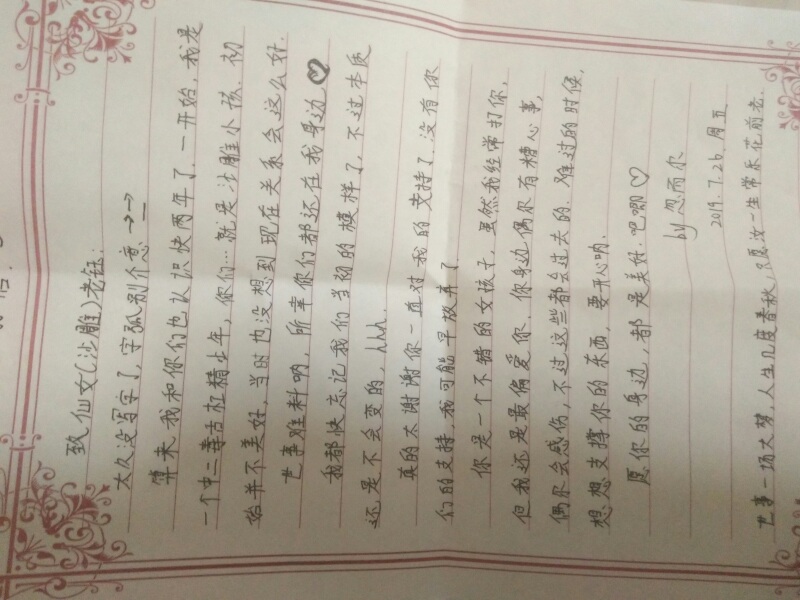 致仙女(沙雕)老钰:
太久没写字了,字孤别介意 →_→
算来我和你们也认识快两年了.一开始,我是
一个中二毒舌杠精少年,你们…就是沙雕小孩.初
始并不美好,当时也没想到现在关系会这么好.
世事难料呐,所幸你们都还在我身边.♥
我都快忘记我们当初的模样了,不过本质
还是不会变的,hhh.
真的太谢谢你一直对我的支持了.没有你
们的支持,我可能早放弃了
你是一个不错的女孩子,虽然我经常打你,
但我还是最偏爱你,你身边偶尔有糟心事,
偶尔会感伤,不过这些都会过去的.难过的时候,
想想支撑你的东西,要开心呐.
愿你的身边,都是美好.吧唧♡
by 忽而尔
2019.7.26.周五
世事一场大梦,人生几度春秋,只愿汝一生常乐花前老.